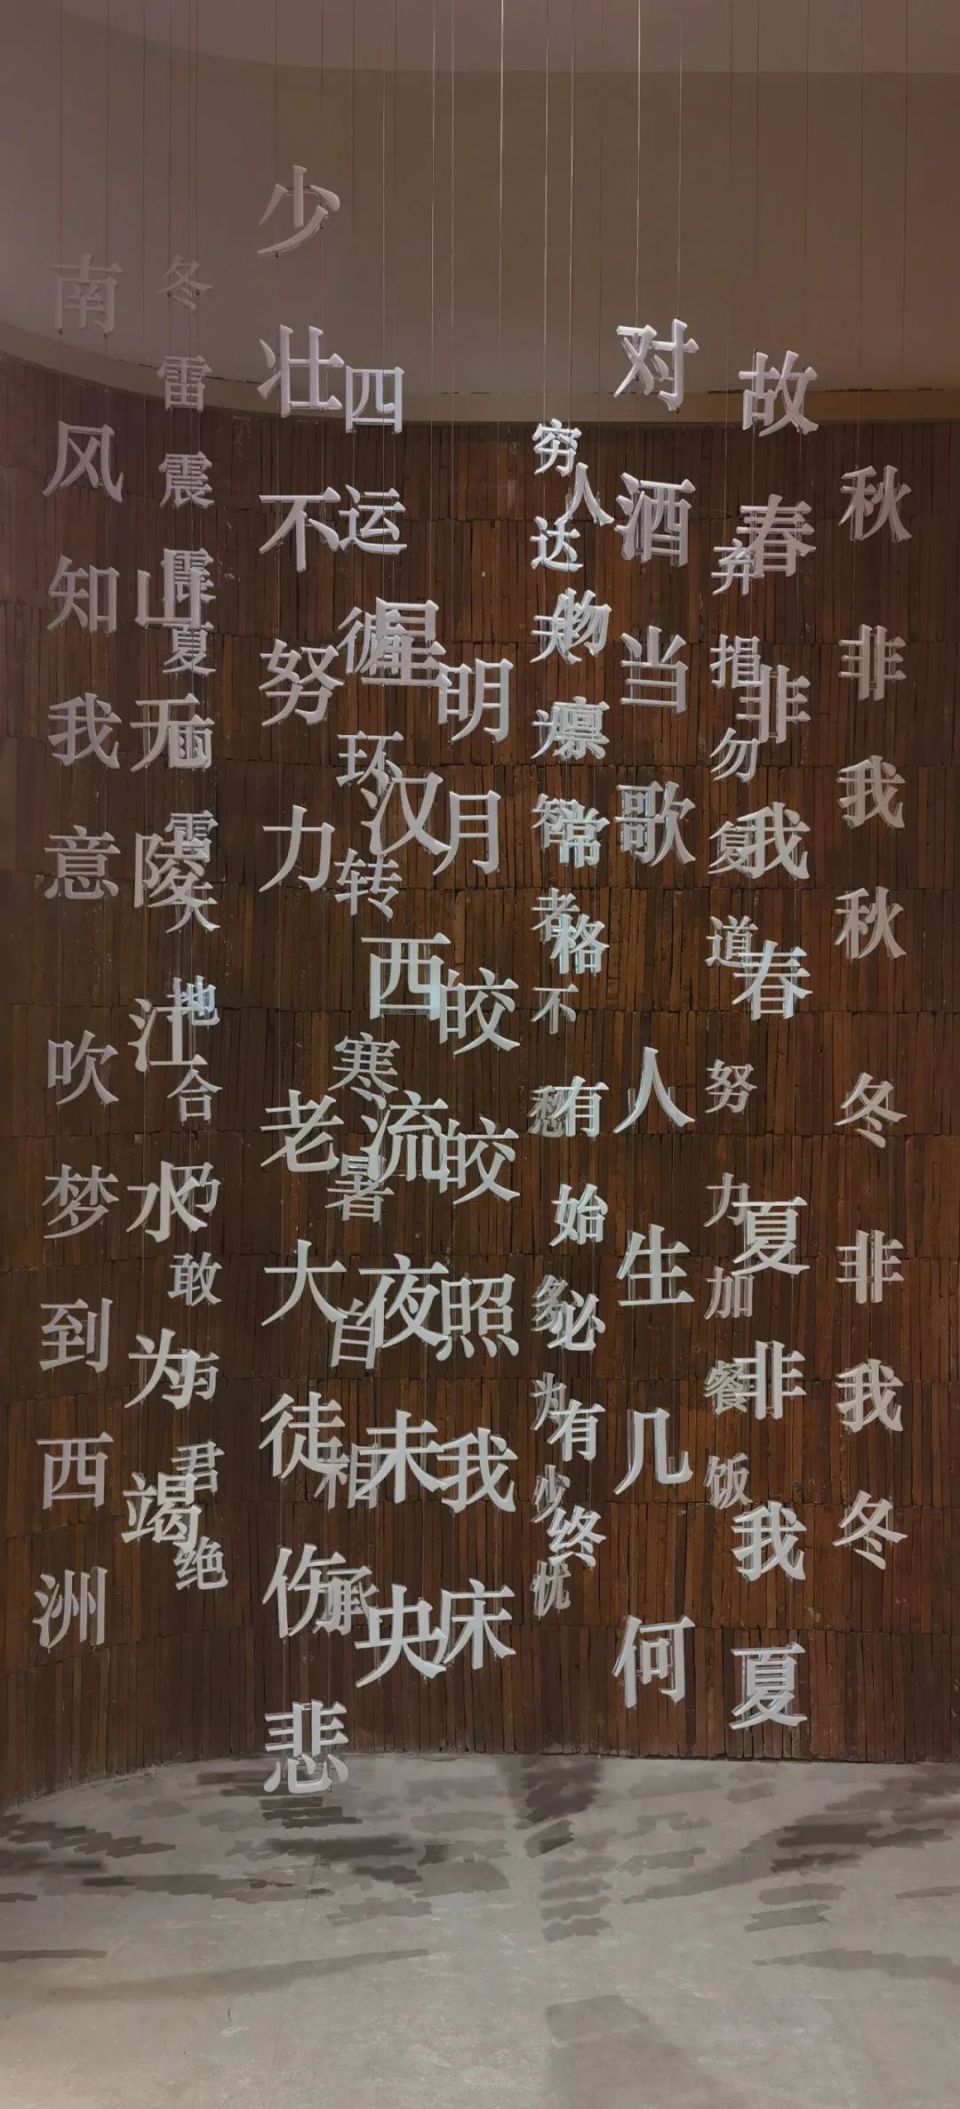 南风知我意吹梦到西洲
山无陵江水为竭
冬雷震震夏雨雪天地合乃敢与君绝
少壮不努力老大徒伤悲
四运循环转寒暑自相承
星汉西流夜未央
明月皎皎照我床
穷达天为智者不愁多为少忧
人物禀常格有始必有终
对酒当歌人生几何
弃捐勿复道努力加餐饭
故春非我春夏非我夏
秋非我秋冬非我冬